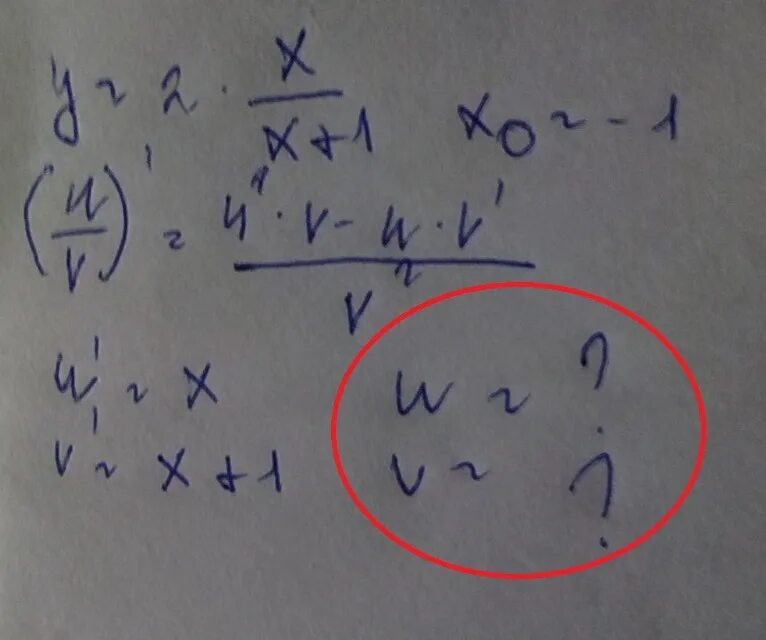 y = 2 · x / (x + 1)   x₀ = -1
(u / v)' = (u' · v - u · v') / v²
u' = x   u = ?
v' = x + 1   v = ?